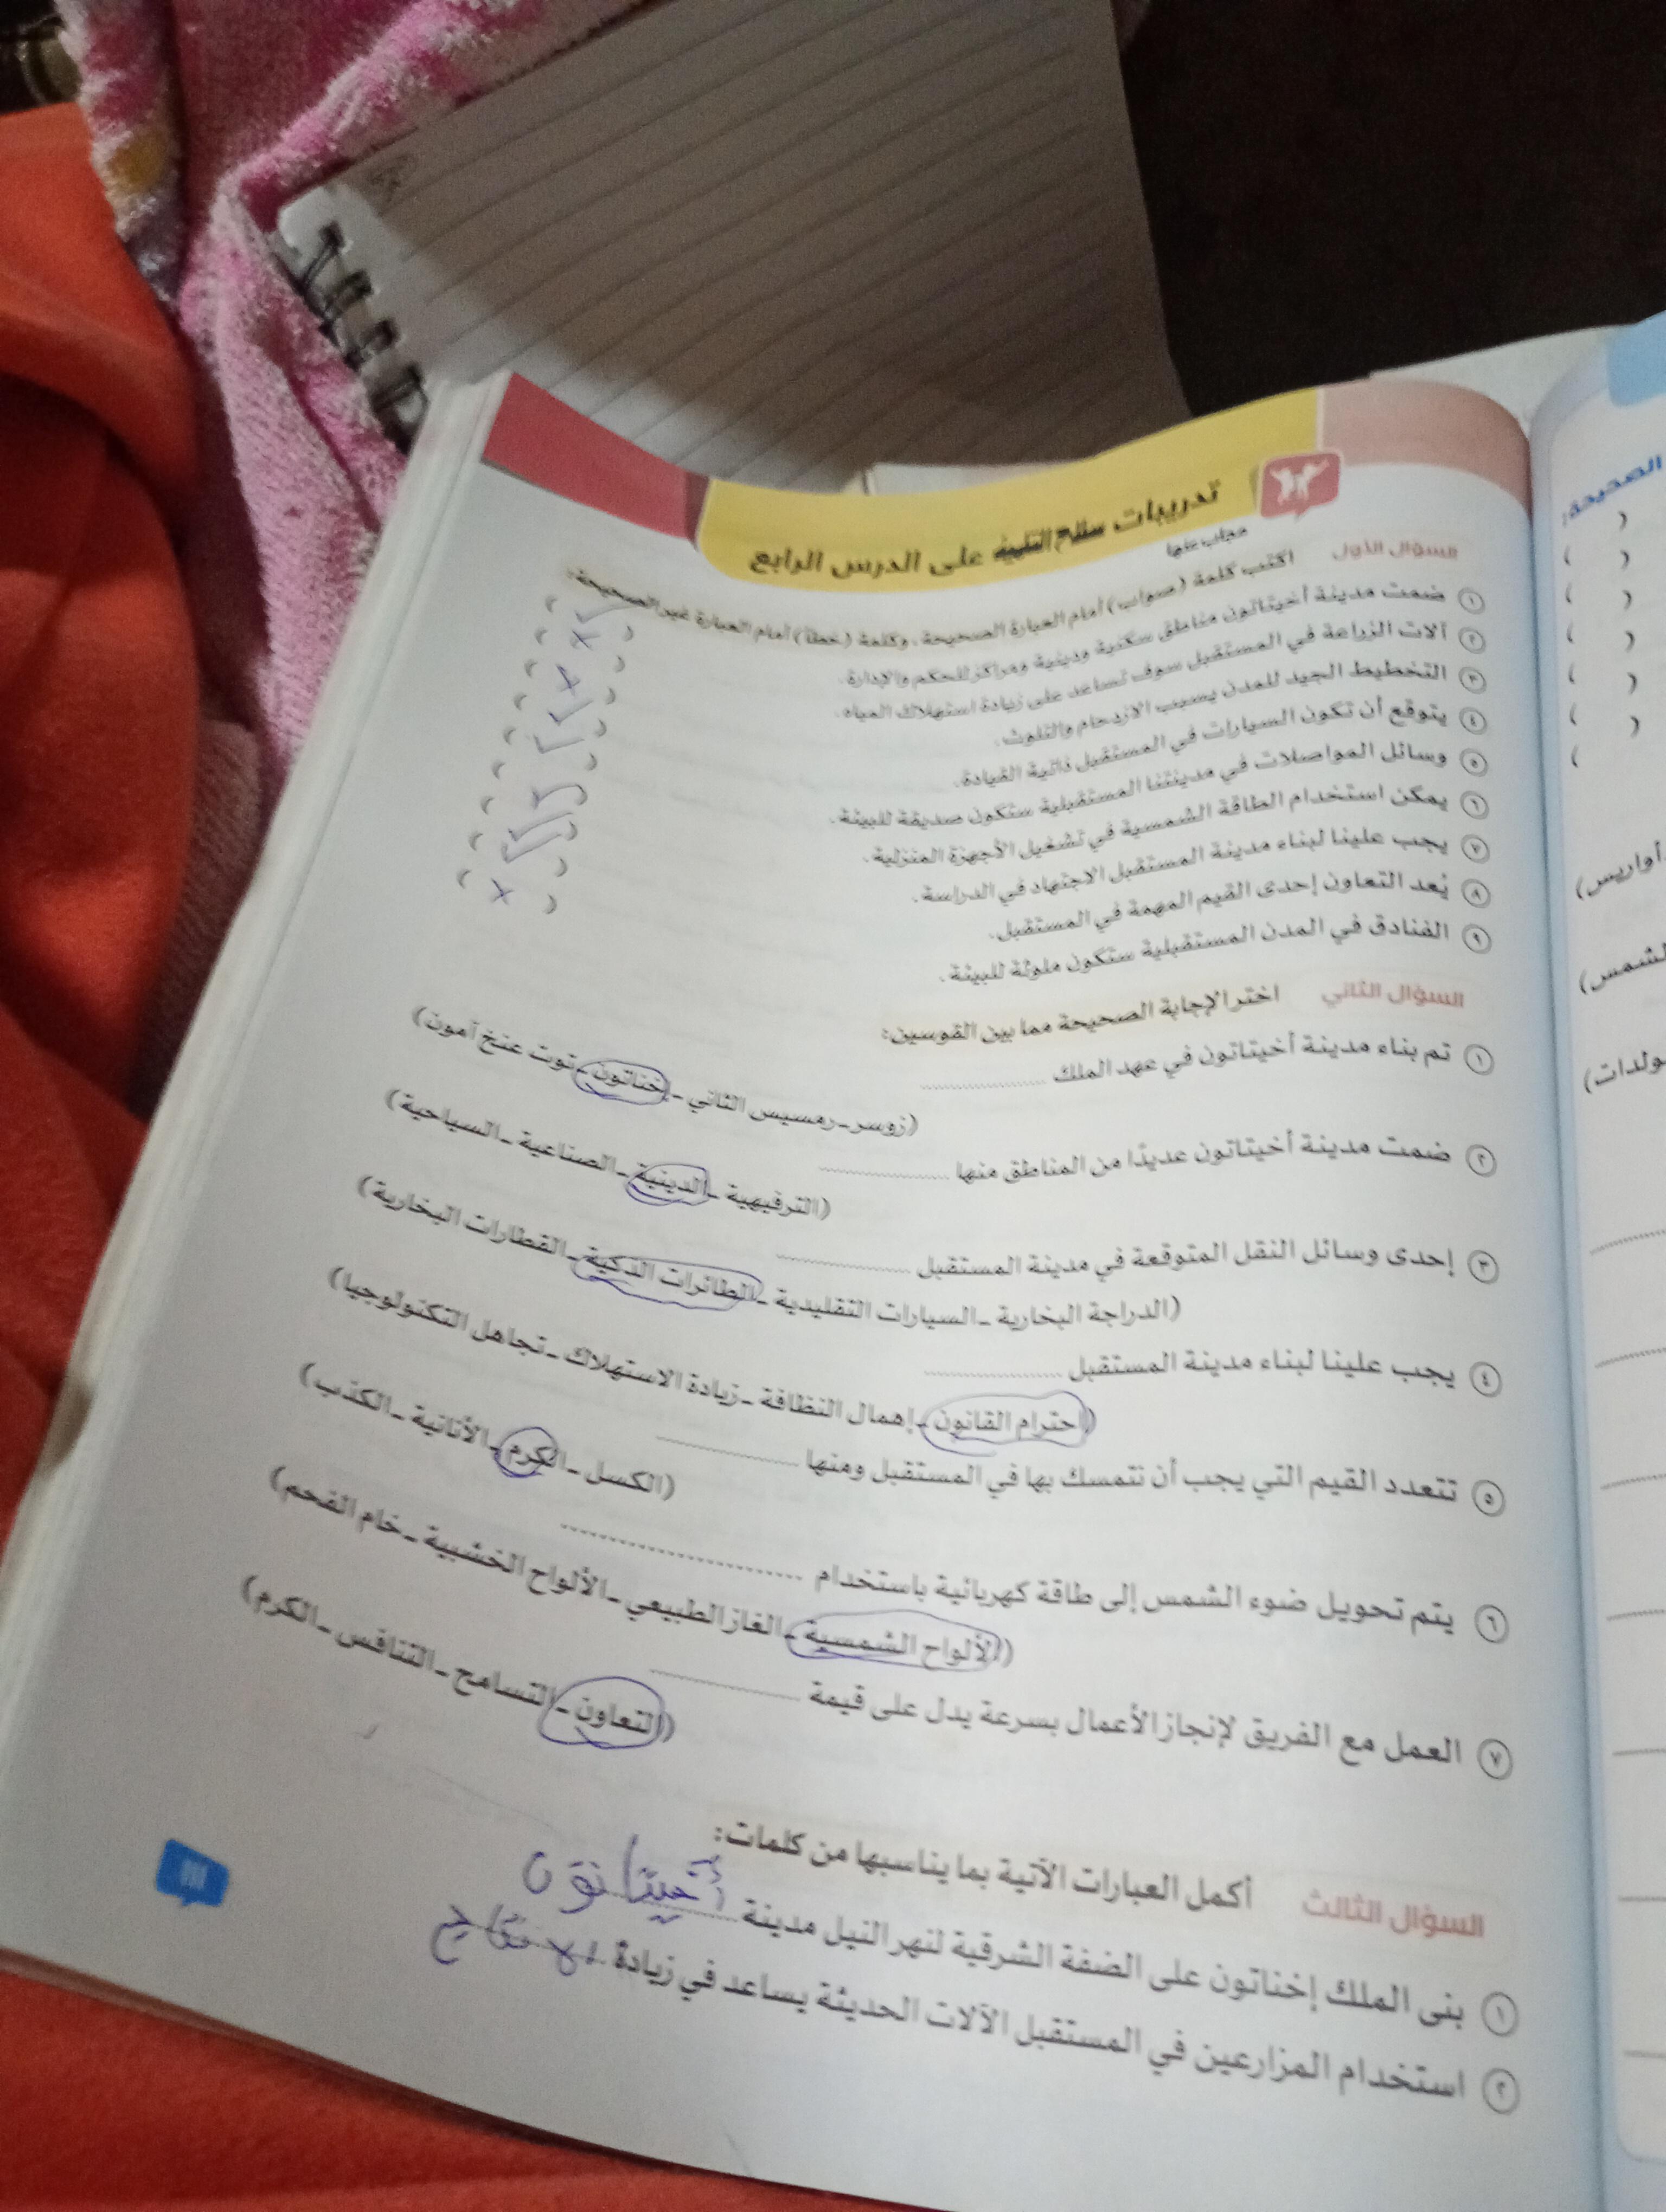 تدريبات سلاح التلميذ على الدرس الرابع
مجاب عنها
السؤال الأول اكتب كلمة (صواب) أمام العبارة الصحيحة، وكلمة (خطأ) أمام العبارة غير الصحيحة:
١ ضمت مدينة أخيتاتون مناطق سكنية ودينية ومراكز للحكم والإدارة.
٢ آلات الزراعة في المستقبل سوف تساعد على زيادة استهلاك المياه.
٣ التخطيط الجيد للمدن يسبب الازدحام والتلوث.
٤ يتوقع أن تكون السيارات في المستقبل ذاتية القيادة.
٥ وسائل المواصلات في مدينتنا المستقبلية ستكون صديقة للبيئة.
٦ يمكن استخدام الطاقة الشمسية في تشغيل الأجهزة المنزلية.
٧ يجب علينا لبناء مدينة المستقبل الاجتهاد في الدراسة.
٨ يُعد التعاون إحدى القيم المهمة في المستقبل.
٩ الفنادق في المدن المستقبلية ستكون ملوثة للبيئة.
السؤال الثاني اختر الإجابة الصحيحة مما بين القوسين:
١ تم بناء مدينة أخيتاتون في عهد الملك ..........
(زوسر - رمسيس الثاني - إخناتون - توت عنخ آمون)
٢ ضمت مدينة أخيتاتون عديدًا من المناطق منها ..........
(الترفيهية - الدينية - الصناعية - السياحية)
٣ إحدى وسائل النقل المتوقعة في مدينة المستقبل ..........
(الدراجة البخارية - السيارات التقليدية - الطائرات الذكية - القطارات البخارية)
٤ يجب علينا لبناء مدينة المستقبل ..........
(احترام القانون - إهمال النظافة - زيادة الاستهلاك - تجاهل التكنولوجيا)
٥ تتعدد القيم التي يجب أن نتمسك بها في المستقبل ومنها ..........
(الكسل - الكرم - الأنانية - الكذب)
٦ يتم تحويل ضوء الشمس إلى طاقة كهربائية باستخدام ..........
(الألواح الشمسية - الغاز الطبيعي - الألواح الخشبية - خام الفحم)
٧ العمل مع الفريق لإنجاز الأعمال بسرعة يدل على قيمة ..........
(التعاون - التسامح - التنافس - الكرم)
السؤال الثالث أكمل العبارات الآتية بما يناسبها من كلمات:
١ بنى الملك إخناتون على الضفة الشرقية لنهر النيل مدينة أخيتاتون
٢ استخدام المزارعين في المستقبل الآلات الحديثة يساعد في زيادة الإنتاج
الصحيحة:
أواريس)
الشمس)